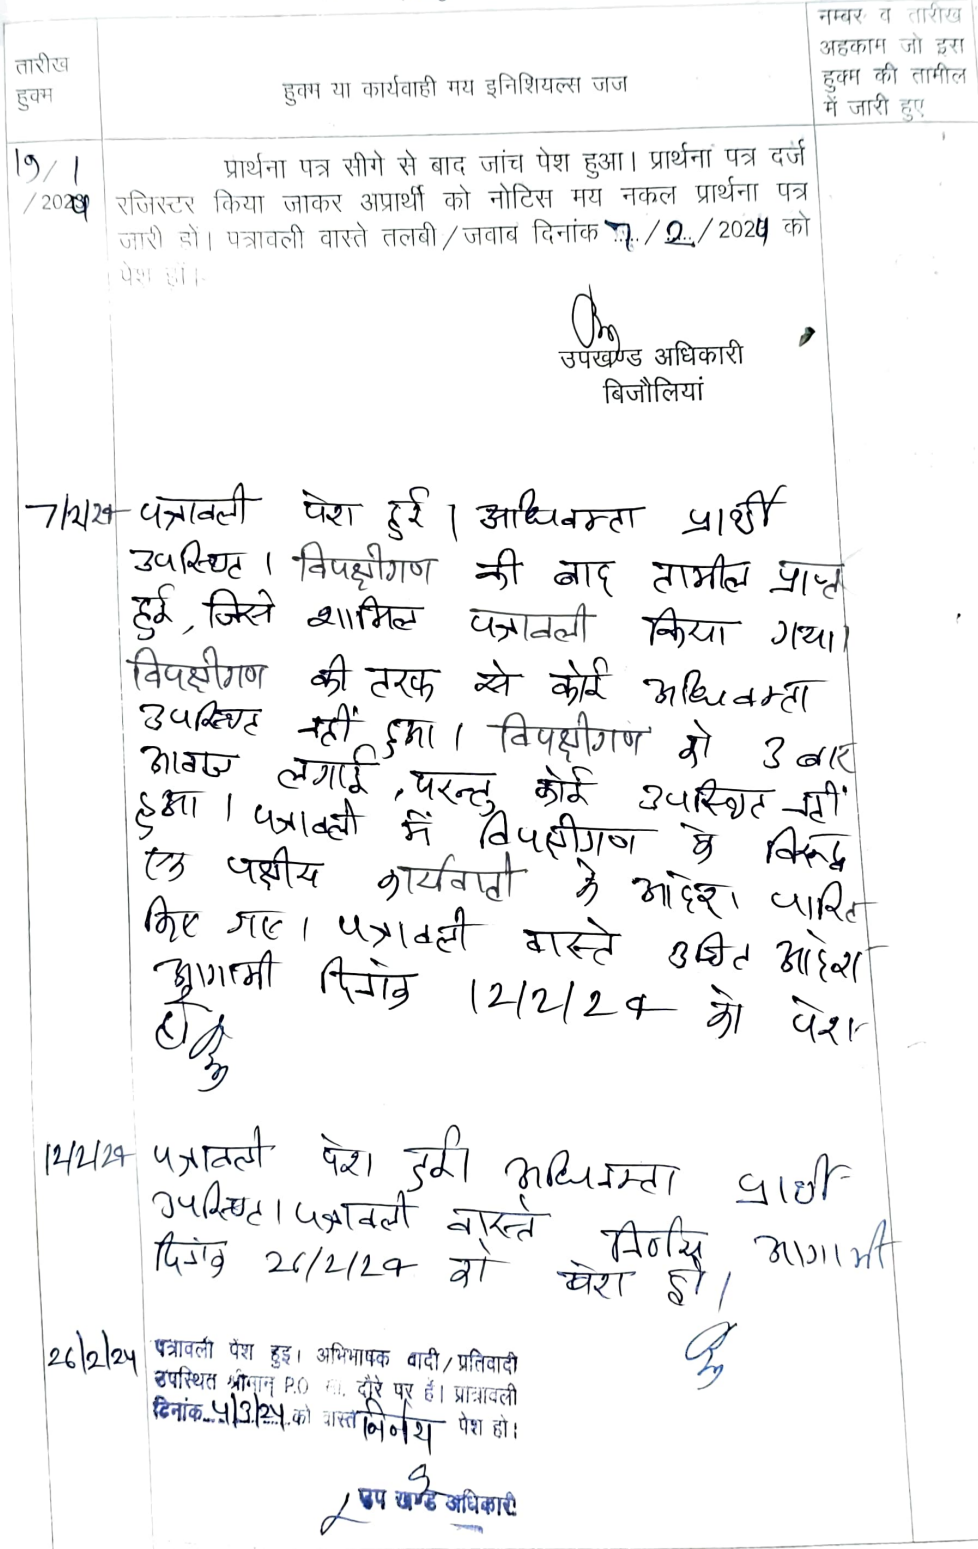 तारीख
हुक्म
हुक्म या कार्यवाही मय इनिशियल्स जज
नम्बर व तारीख
अहकाम जो इस
हुक्म की तामील
में जारी हुए
19/1
/2024
प्रार्थना पत्र सीगे से बाद जांच पेश हुआ। प्रार्थना पत्र दर्ज
रजिस्टर किया जाकर अप्रार्थी को नोटिस मय नकल प्रार्थना पत्र
जारी हो। पत्रावली वास्ते तलबी/जवाब दिनांक 7/2/2024 को
पेश हो।
उपखण्ड अधिकारी
बिजौलियां
7/2/24 पत्रावली पेश हुई। अधिवक्ता प्रार्थी
उपस्थित। विपक्षीगण की बाद तामील प्राप्त
हुई, जिसे शामिल पत्रावली किया गया।
विपक्षीगण की तरफ से कोई अधिवक्ता
उपस्थित नहीं हुआ। विपक्षीगण को 3 बार
आवाज लगाई, परन्तु कोई उपस्थित नहीं
हुआ। पत्रावली में विपक्षीगण के विरूद्ध
एक पक्षीय कार्यवाही के आदेश पारित
किए गए। पत्रावली वास्ते उचित आदेश
आगामी दिनांक 12/2/24 को पेश
हो
12/2/24 पत्रावली पेश हुई। अधिवक्ता प्रार्थी
उपस्थित। पत्रावली वास्ते निर्णय आगामी
दिनांक 26/2/24 को पेश हो।
26/2/24 पत्रावली पेश हुइ। अभिभाषक वादी/प्रतिवादी
उपस्थित श्रीमान् P.O दौरे पर है। प्रात्रावली
दिनांक 4/3/24 को वास्ते निर्णय पेश हो।
उप खण्ड अधिकारी